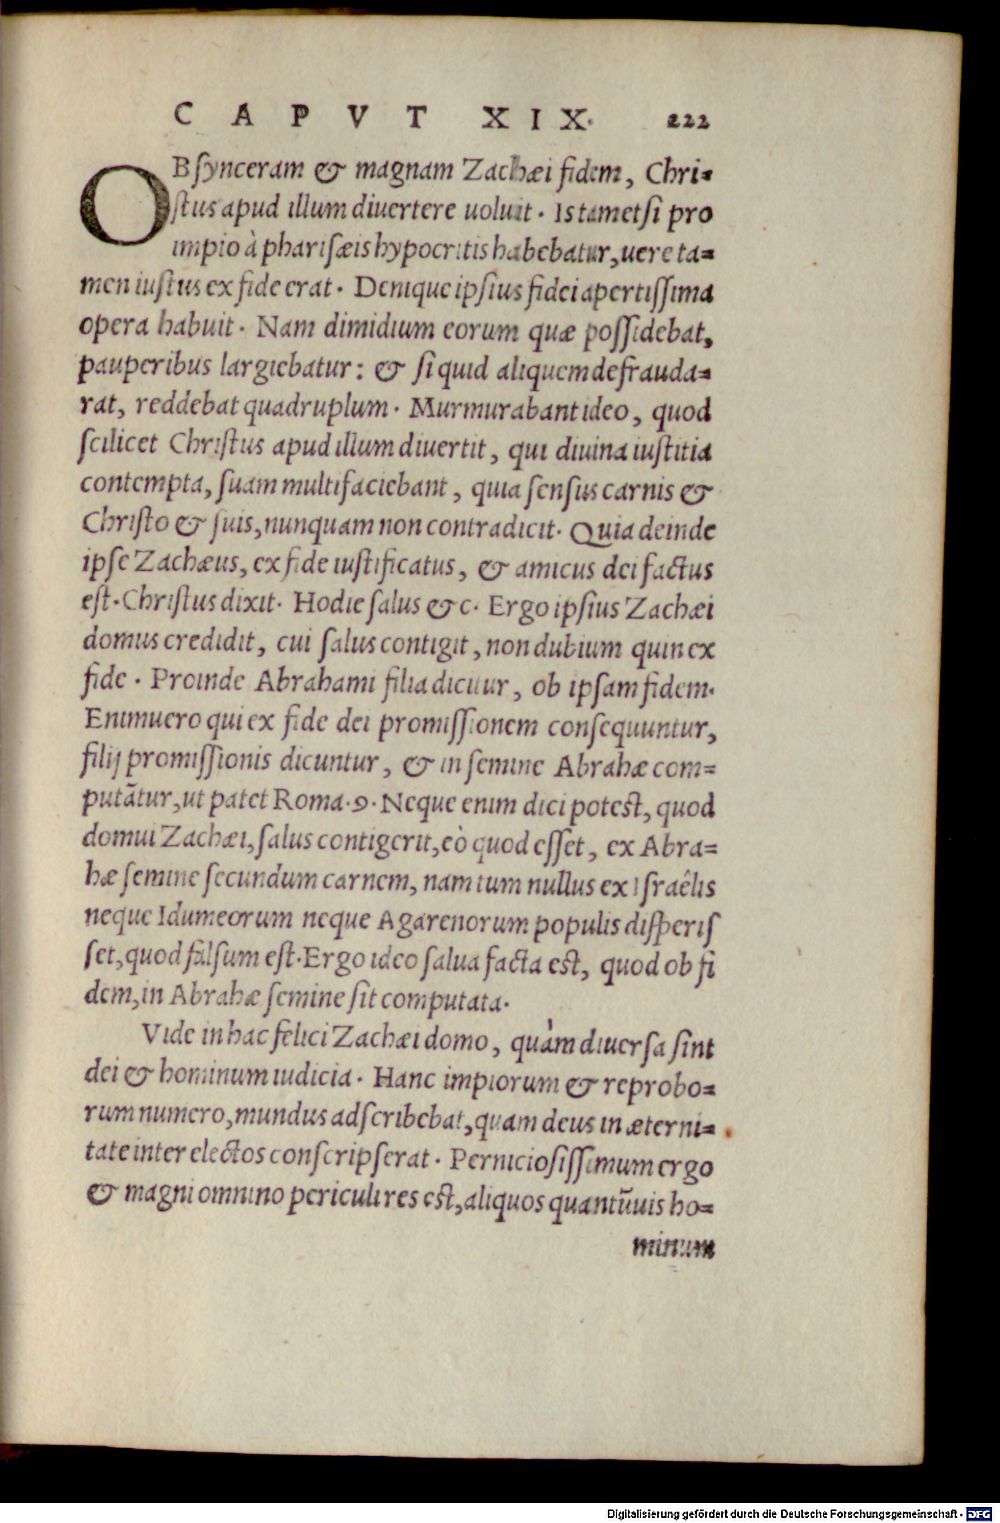 CAPVT XIX. 222
OB synceram & magnam Zachæi fidem, Chri-
stus apud illum diuertere uoluit. Is tametsi pro
impio à pharisæis hypocritis habebatur, uere ta-
men iustus ex fide erat. Denique ipsius fidei apertissima
opera habuit. Nam dimidium eorum quæ possidebat,
pauperibus largiebatur: & si quid aliquem defrauda-
rat, reddebat quadruplum. Murmurabant ideo, quod
scilicet Christus apud illum diuertit, qui diuina iustitia
contempta, suam multifaciebant, quia sensus carnis &
Christo & suis, nunquam non contradicit. Quia deinde
ipse Zachæus, ex fide iustificatus, & amicus dei factus
est. Christus dixit. Hodie salus &c. Ergo ipsius Zachæi
domus credidit, cui salus contigit, non dubium quin ex
fide. Proinde Abrahami filia dicitur, ob ipsam fidem.
Enimuero qui ex fide dei promissionem consequuntur,
filij promissionis dicuntur, & in semine Abrahæ com-
putãtur, ut patet Roma. 9. Neque enim dici potest, quod
domui Zachæi, salus contigerit, eò quod esset, ex Abra-
hæ semine secundum carnem, nam tum nullus ex Israêlis
neque Idumeorum neque Agarenorum populis disperis
set, quod falsum est. Ergo ideo salua facta est, quod ob fi
dem, in Abrahæ semine sit computata.
Vide in hac felici Zachæi domo, quàm diuersa sint
dei & hominum iudicia. Hanc impiorum & reprobo-
rum numero, mundus adscribebat, quam deus in æterni-
tate inter electos conscripserat. Perniciosissimum ergo
& magni omnino periculi res est, aliquos quantũuis ho-
minum
Digitalisierung gefördert durch die Deutsche Forschungsgemeinschaft - DFG